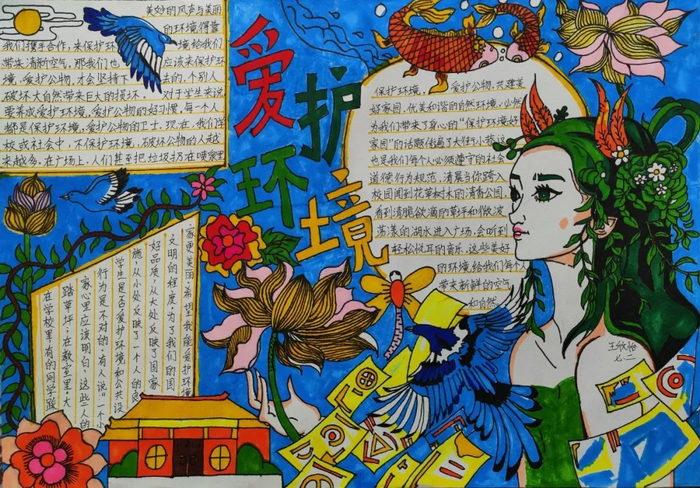 爱护环境
美妙的风声与美丽
的环境,得靠
我们携手合作,来保护环境
境给我们
带来清新空气,那我们也
应该来保护环
境。爱护公物,才会坚持下
去的,个别人
破坏大自然,带来巨大的损坏。
对于学生来说
要养成爱护环境、爱护公物的好习惯,每一个人
都是保护环境、爱护公物的卫士,现在,我们学
校或社会中,不保护环境,破坏公物的人越
来越多,在广场上,人们甚至把垃圾扔在喷泉里
保护环境,爱护公物,共建美
好家园,优美和谐的自然环境,必然
为我们带来了身心的"保护环境
家园"的话题,传遍了大街小巷,这
也是我们每个人必须遵守的社会
道德行为规范,清晨当你踏入
校园闻到花草树木的清香,
看到清脆欲滴的草坪和微波
荡漾的湖水,进入广场,会听到
轻松悦耳的音乐,这些美好
的环境给我们每个人
带来新鲜的空气
和自然
家更美丽,希望我能爱护环境
文明的程度,为了我们的国
好品质,从大处反映了国家
施,从小处反映了一个人的
学生是否爱护环境和公共设
行为是不对的,有人说"一个
家心里应该明白,这些人的
踏草坪,在教室里大
在学校里有的同学
王欣怡
七.二